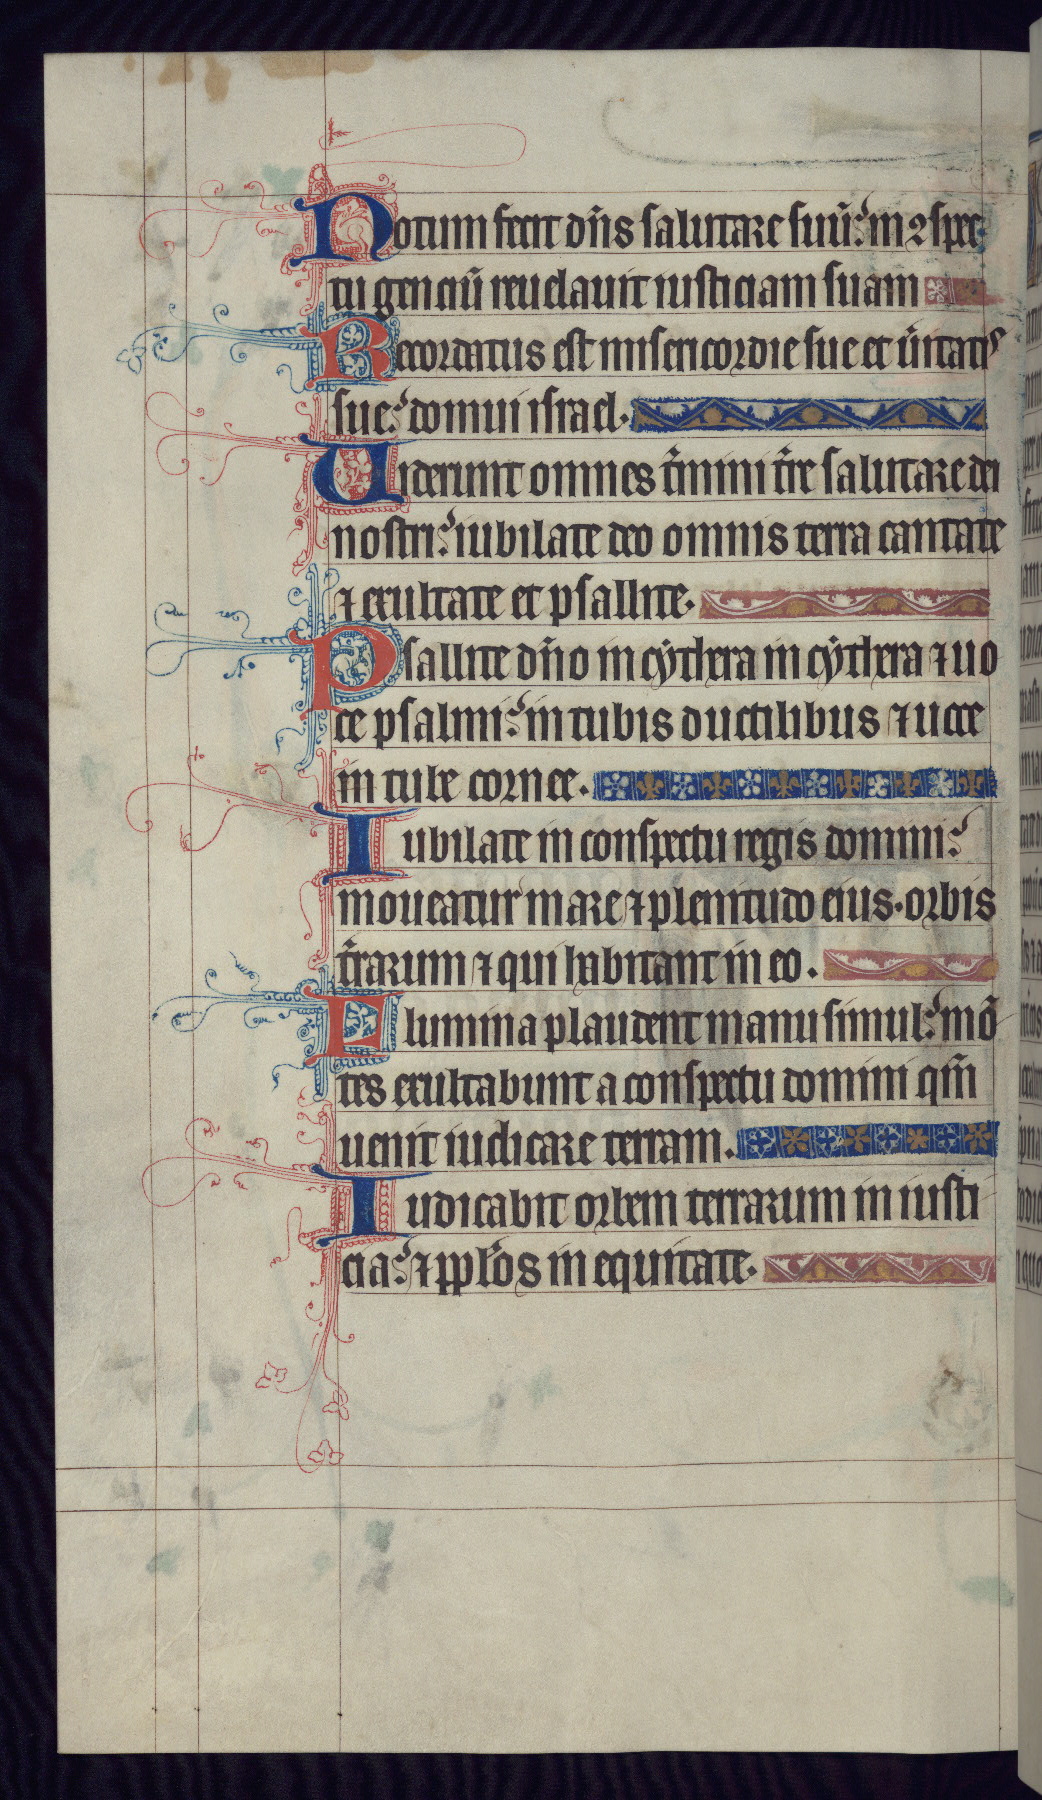 Notum fecit dñs salutare suũ: in ꝯspec
tu genciũ reuelauit iusticiam suam
Recordatus est misericordie sue et ũitatis
sue: domui israel.
Uiderunt omnes t̃mini t̃re salutare dei
nostri: iubilate deo omnis terra cantate
⁊ exultate et psallite.
Psallite dño in cythera in cythera ⁊ uo
ce psalmi: in tubis ductilibus ⁊ uoce
in tube cornee.
Iubilate in conspectu regis domini:
moueatur mare ⁊ plenitudo eius. orbis
t̃rarum ⁊ qui habitant in eo.
Flumina plaudent manu simul: mõ
tes exultabunt a conspectu domini qm̃
uenit iudicare terram.
Iudicabit orbem terrarum in iusti
cia: ⁊ pplõs in equitate.